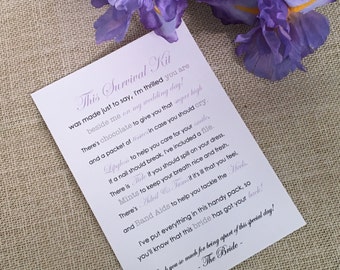 This Survival Kit
was made just to say, I'm thrilled you are
beside me on my wedding day!
There's chocolate to give you that sugar high
and a packet of tissues in case you should cry
to help you care for your
If a nail should break, I've included a file
There is Tide if you should spill on your dress.
Mints to keep your breath nice and fresh.
There's if it is that you feel,
and Band Aids to help you tackle the
I've put everything in this handy pack, so
you'll know that this bride has got your back!
you so much for being apart of this special day!
- The Bride -